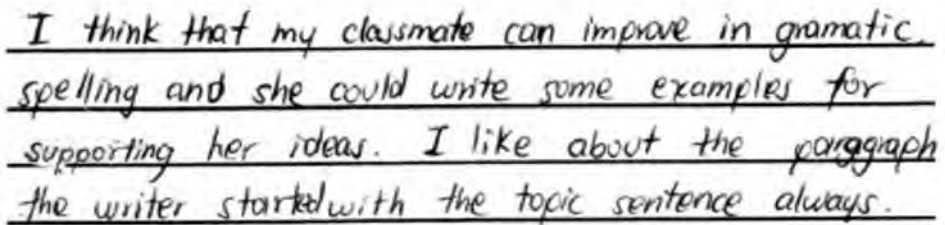 I think that my classmate can improve in gramatic,
spelling and she could write some examples for
supporting her ideas. I like about the parggraph
the writer started with the topic sentence always.